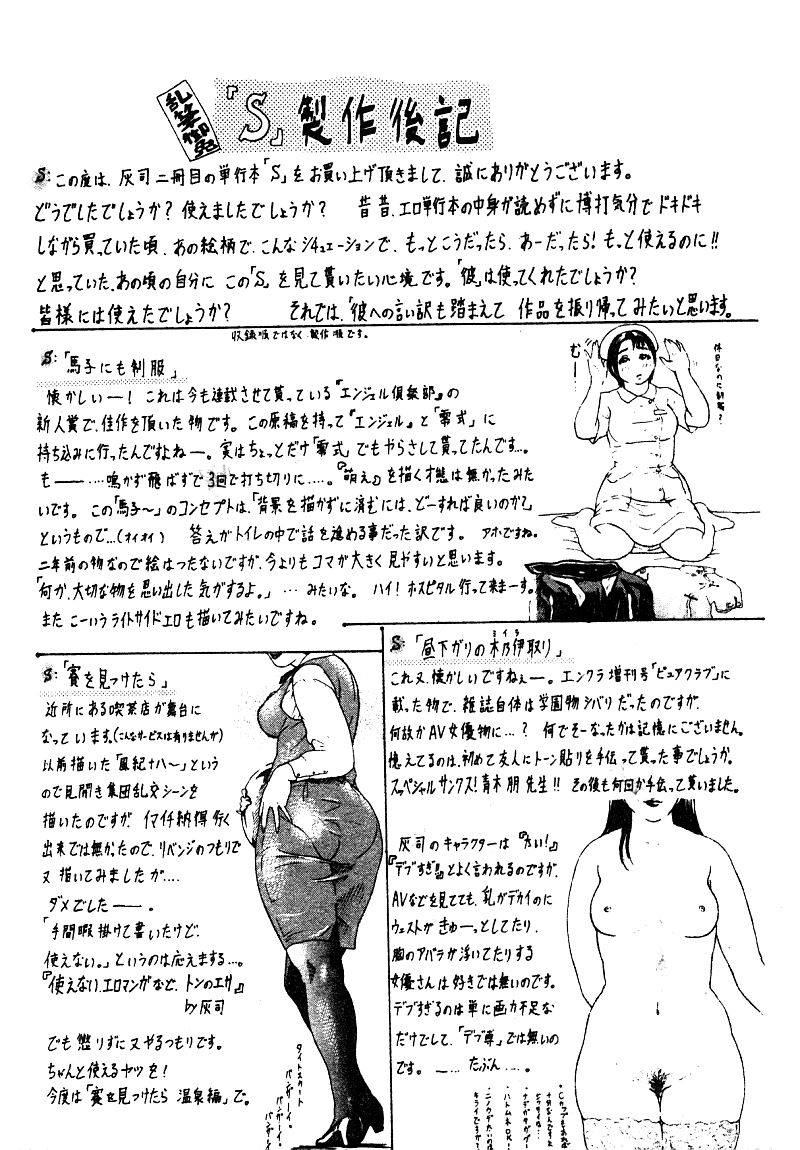 乱筆御免
『S』製作後記
S:この度は、灰司二冊目の単行本「S」をお買い上げ頂きまして、誠にありがとうございます。
どうでしたでしょうか？使えましたでしょうか？　昔昔、エロ単行本の中身が読めずに博打気分でドキドキ
しながら買っていた頃、あの絵柄で、こんなシチュエーションで、もっとこうだったら、あーだったら！もっと使えるのに!!
と思っていた、あの頃の自分に この「S」を見て貰いたい心境です。「彼」は使ってくれたでしょうか？
皆様には使えたでしょうか？　それでは、「彼への言い訳も踏まえて 作品を振り帰ってみたいと思います。
収録順ではなく、製作順です。
S:「馬子にも制服」
懐かしいー！これは今も連載させて貰っている『エンジェル倶楽部』の
新人賞で、佳作を頂いた物です。この原稿を持って『エンジェル』と「零式」に
持ち込みに行ったんですよねー。実はちょっとだけ「零式」でもやらさして貰ってたんです…。
も――……鳴かず飛ばずで3回で打ち切りに……。『萌え』を描く才態は無かったみた
いです。この「馬子〜」のコンセプトは、「背景を描かずに済むには、どーすれば良いのか？」
というもので…(オイオイ)　答えがトイレの中で話を進める事だった訳です。アホですね。
二年前の物なので絵はつたないですが、今よりもコマが大きく見やすいと思います。
「何か、大切な物を思い出した気がするよ。」…みたいな。ハイ！ホスピタル行って来まーす。
また こーいうライトサイドエロも描いてみたいですね。
休日なのに制服？
むー
S:「賽を見つけたら」
近所にある喫茶店が舞台に
なっています。(こんなサービスは有りませんが)
以前描いた「風紀ナハ〜」という
ので見開き集団乱交シーンを
描いたのですが、イマイチ納得行く
出来では無かったので、リベンジのつもりで
又描いてみましたが….
ダメでしたー。
「手間暇掛けて書いたけど、
使えない。」というのは応えまする…。
『使えない、エロマンガなど、トンのエサ』
by灰司
でも懲りずに又やるつもりです。
ちゃんと使えるヤツを！
今度は「賽を見つけたら 温泉編」で。
タイトスカート
バンザーイ。
バンザーイ。
バンザーイ
S:「昼下がりの木乃伊取り」
ミイラ
これ又、懐かしいですねぇー。エンクラ増刊号「ピュアクラブ」に
載った物で、雑誌自体は学園物シバリだったのですが、
何故かAV女優物に…？何でそーなったかは記憶にございません。
憶えてるのは、初めて友人にトーン貼りを手伝って貰った事でしょうか。
スッペシャルサンクス！青木朋先生!!　その後も何回か手伝って貰いました。
灰司のキャラクターは『太い！』
『デブすぎ!!』とよく言われるのですが、
AVなどを見てても、乳がデカイのに
ウェストがきゅーっとしてたり、
胸のアバラが浮いてたりする
女優さんは好きでは無いのです。
デブすぎるのは単に画力不足な
だけでして、「デブ専」では無いの
です。……たぶん…。
・ハトムネOK！
キライですが？